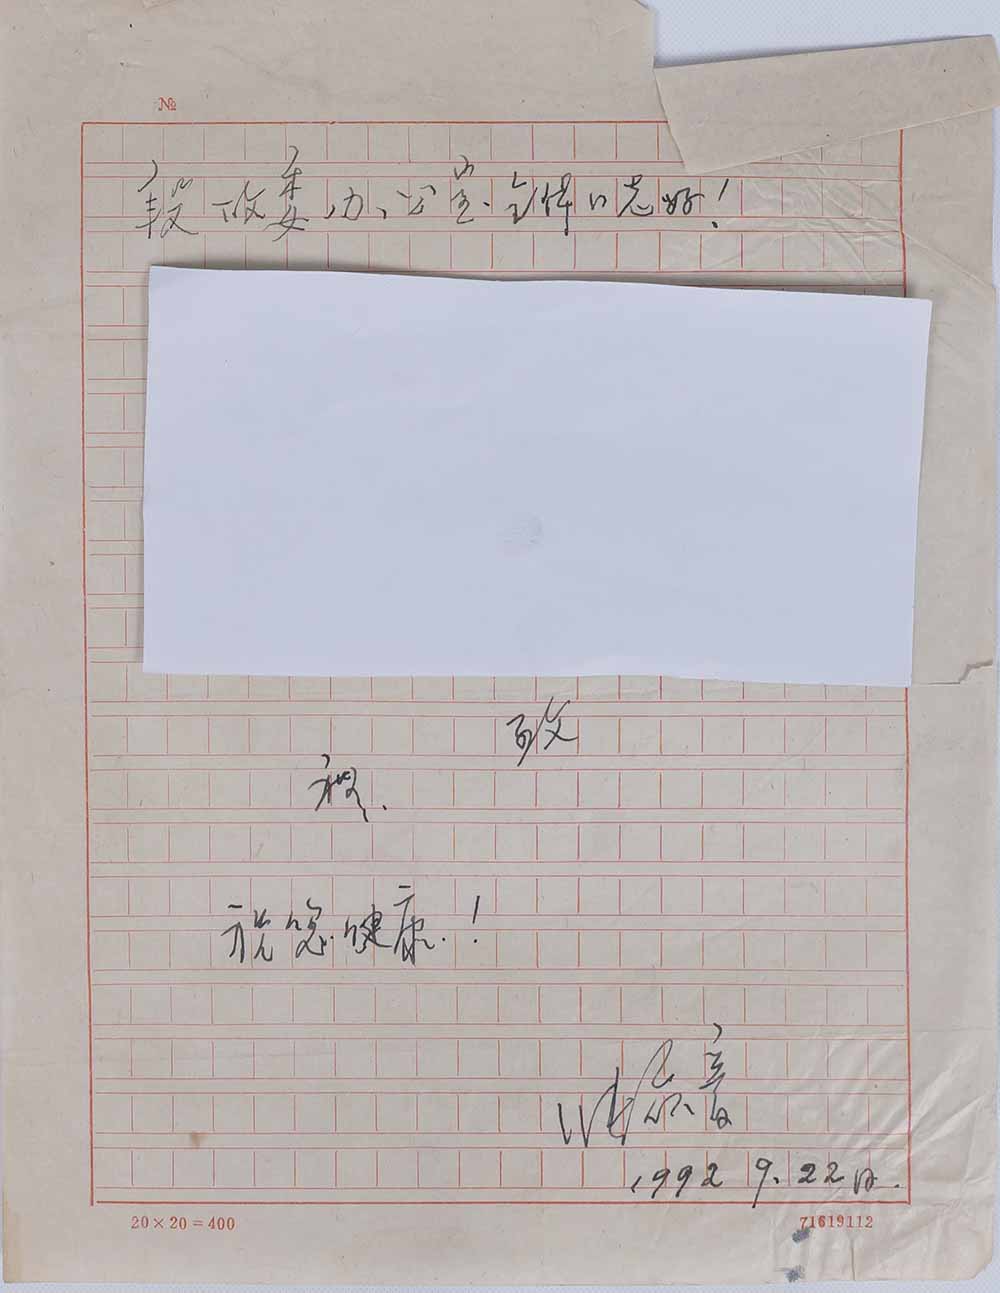 №
段政委办公室全体同志好！
致
祝您健康！
1992 9.22日.
20×20=400
71619112